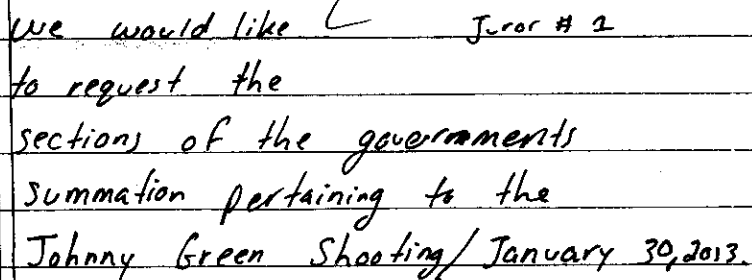 we would like Juror # 1
to request the
sections of the governments
summation pertaining to the
Johnny Green Shooting/January 30, 2013.